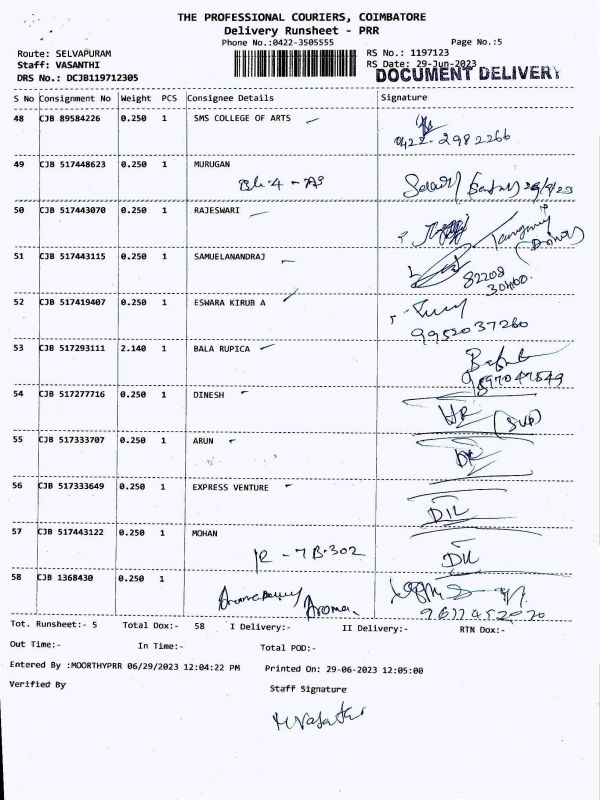 THE PROFESSIONAL COURIERS, COIMBATORE
Delivery Runsheet - PRR
Phone No.:0422-3505555
Page No.:5
Route: SELVAPURAM
RS No.: 1197123
Staff: VASANTHI
RS Date: 29-Jun-2023
DRS No.: DCJB119712305
DOCUMENT DELIVERY
S No Consignment No Weight PCS Consignee Details Signature
48 CJB 89584226 0.250 1 SMS COLLEGE OF ARTS
0422-2982266
49 CJB 517448623 0.250 1 MURUGAN
50 CJB 517443070 0.250 1 RAJESWARI
51 CJB 517443115 0.250 1 SAMUELANANDRAJ
82208
30400.
52 CJB 517419407 0.250 1 ESWARA KIRUB A
9952037260
53 CJB 517293111 2.140 1 BALA RUPICA
54 CJB 517277716 0.250 1 DINESH
55 CJB 517333707 0.250 1 ARUN
56 CJB 517333649 0.250 1 EXPRESS VENTURE
57 CJB 517443122 0.250 1 MOHAN
7B-302
58 CJB 1368430 0.250 1
Aroma
Tot. Runsheet:- 5 Total Dox:- 58 I Delivery:- II Delivery:- RTN Dox:-
Out Time:- In Time:- Total POD:-
Entered By :MOORTHYPRR 06/29/2023 12:04:22 PM Printed On: 29-06-2023 12:05:00
Verified By Staff Signature